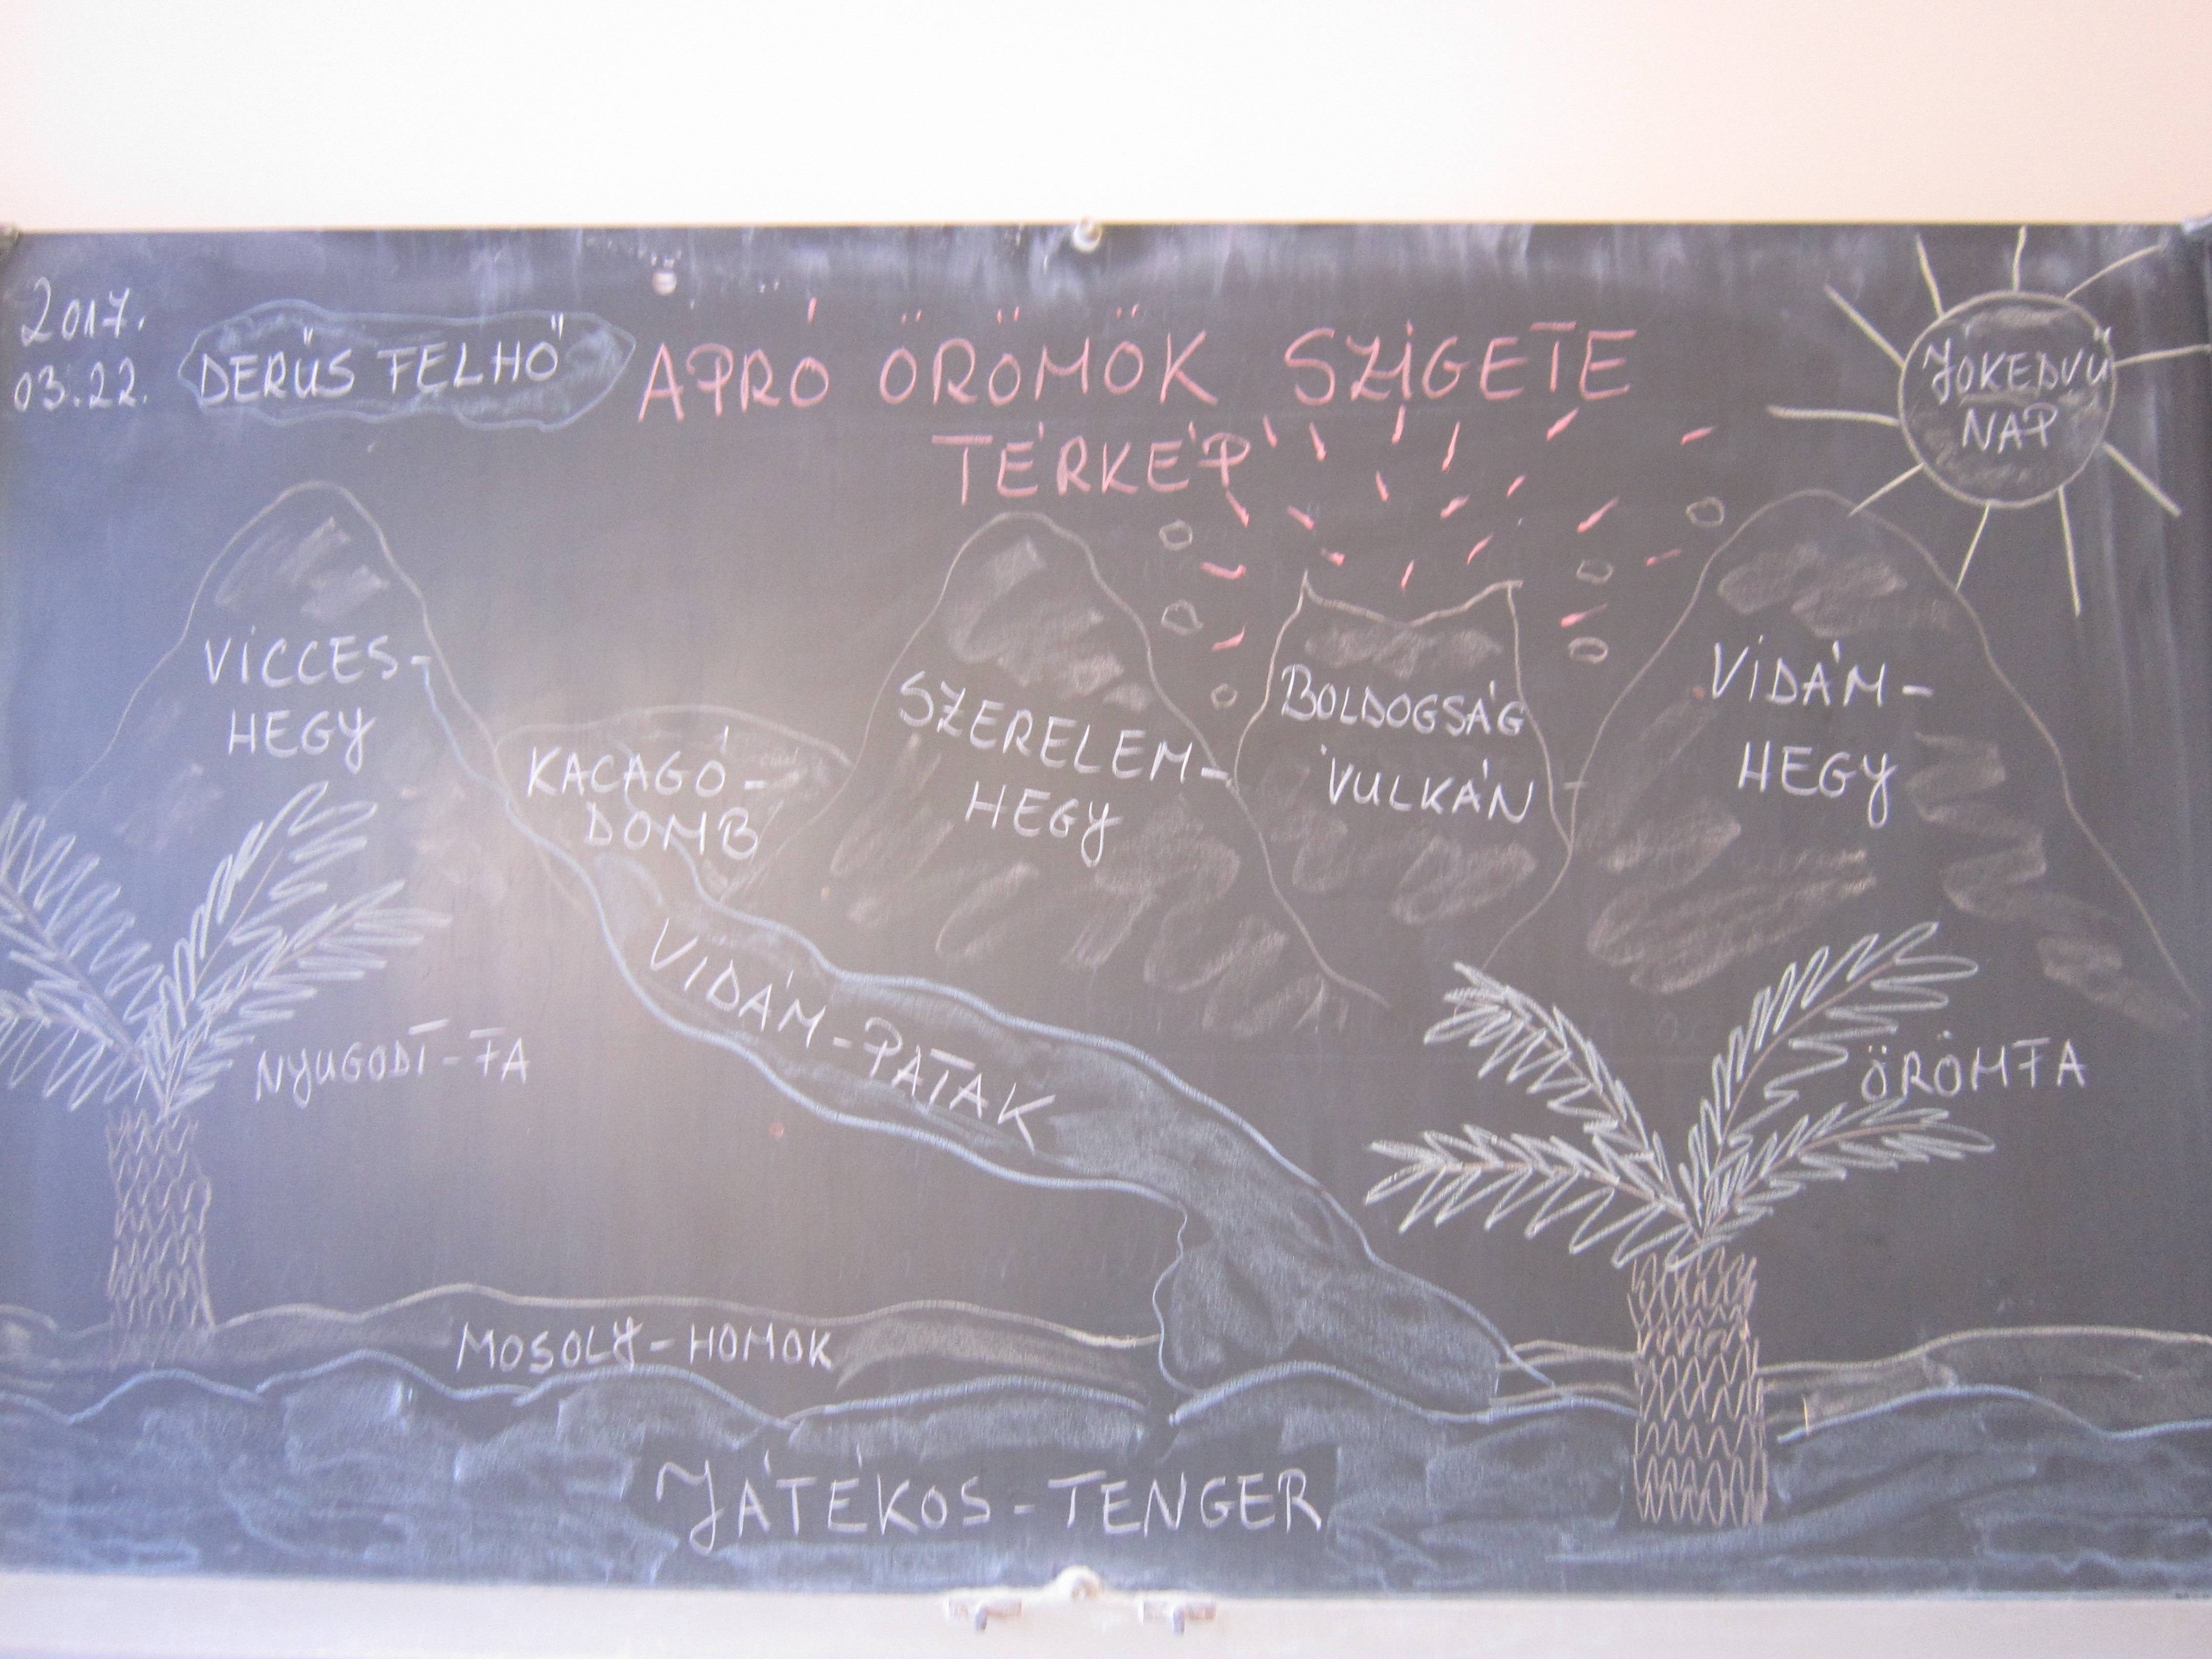 2017.
03.22.
DERŰS FELHŐ
APRÓ ÖRÖMÖK SZIGETE
TÉRKÉP
JÓKEDVŰ
NAP
VICCES-
HEGY
KACAGÓ-
DOMB
SZERELEM-
HEGY
BOLDOGSÁG
VULKÁN
VIDÁM-
HEGY
NYUGODT-FA
VIDÁM-PATAK
ÖRÖMFA
MOSOLY-HOMOK
JÁTÉKOS-TENGER